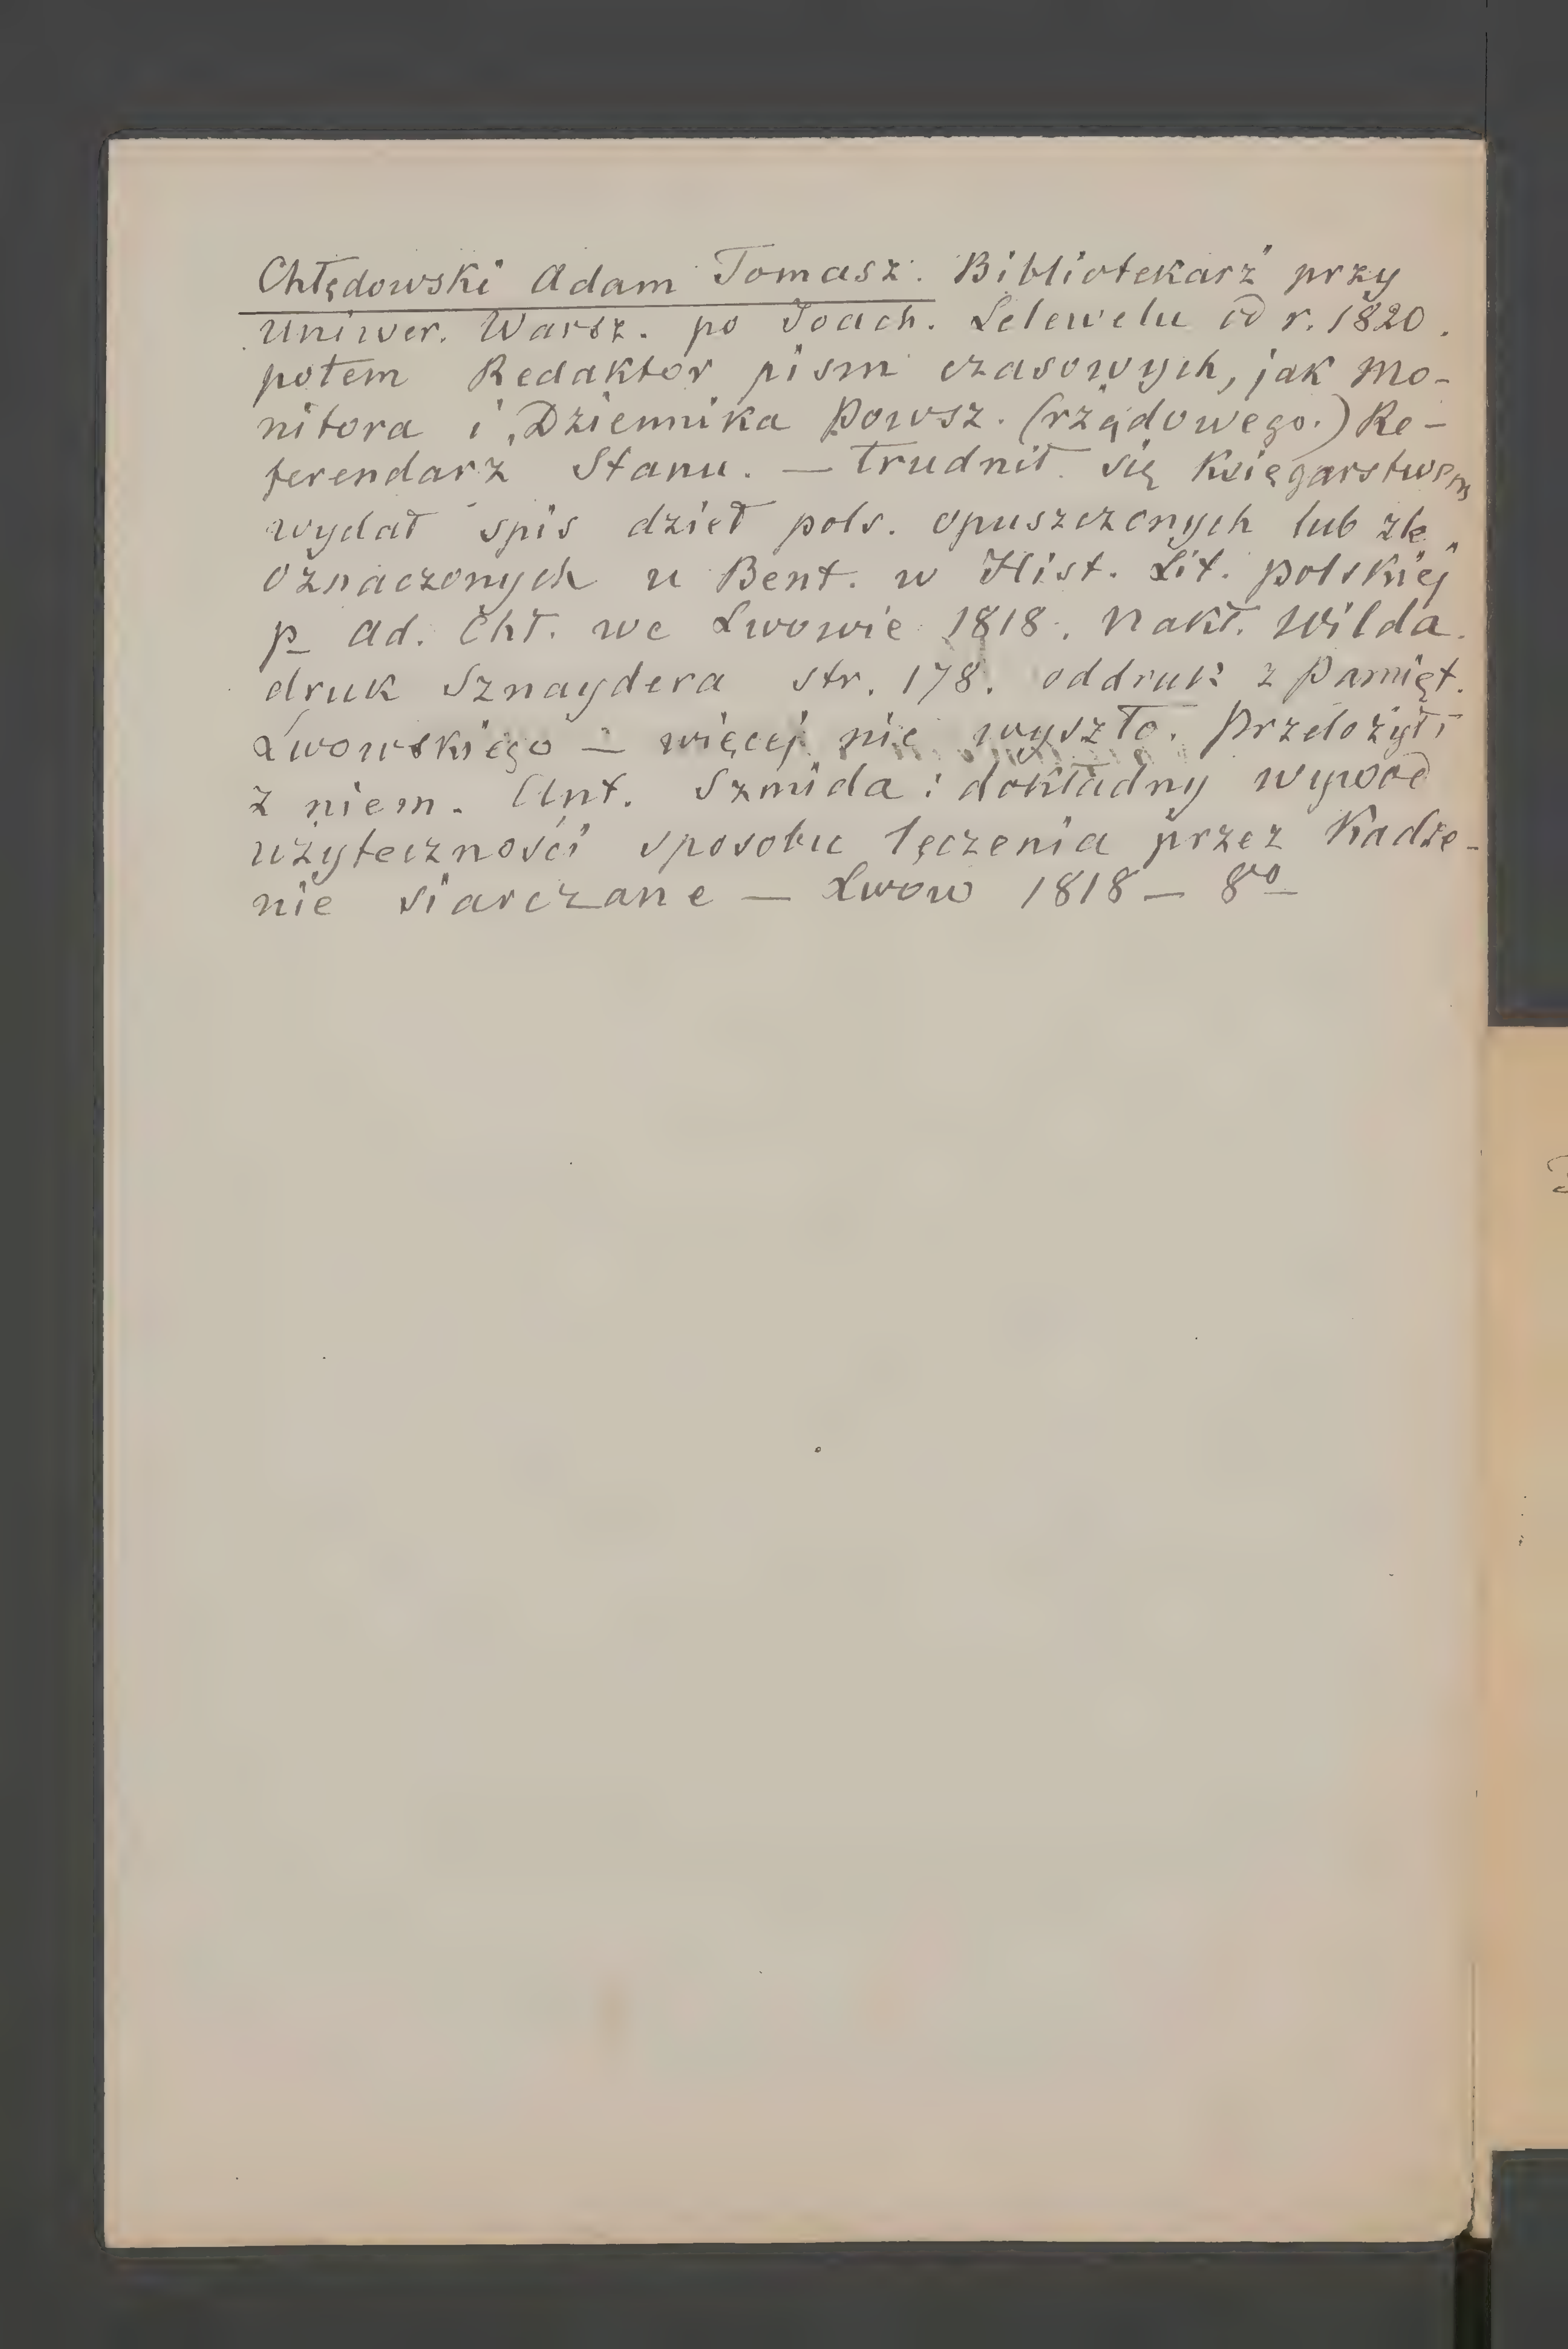 Chłędowski Adam Tomasz. Bibliotekarz przy
Uniwer. Warsz. po Joach. Lelewelu od r. 1820.
potem Redaktor pism czasowych, jak Mo-
nitora i Dziennika Powsz. (rządowego.) Re-
ferendarz Stanu. — Trudnił się Księgarstwem
wydał spis dzieł pols. opuszczonych lub źle
oznaczonych u Bent. w Hist. Lit. polskiej
p. Ad. Chł. we Lwowie 1818. Nakł. Wilda.
druk Sznaydera str. 178. oddruk z Pamięt.
Lwowskiego — więcej nie wyszło. Przełożył
z niem. Ant. Szmida: dokładny wywod
użyteczności sposobu lęczenia przez Kadze-
nie siarczane — Lwow 1818 — 8vo